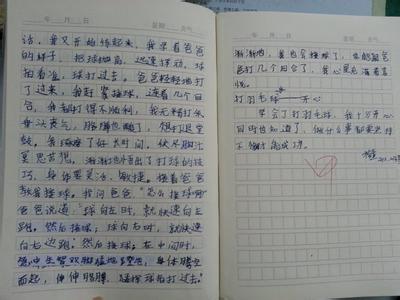 年 月 日 星期 天气
话，我又开始练起来，我学着爸爸
的样子，把球抛高，迅速挥动，球
拍着落，球打过去。爸爸轻轻地打
了过来，我赶紧接球，连着几个回
合，我都打得不顺利，我无精打采
垂头丧气，胳膊也酸了，想打退堂
鼓。我琢磨了好长时间，终
冥思苦想，渐渐地悟出了打球的技
巧，身体要灵活、敏捷。接着爸爸
教我接球。我问爸爸，“怎么接球啊？”
爸爸说道，“球向左时，就快速向左
跑，然后接球；球向右时，就快速
向右边跑，然后接球；在中间时，
身体腾空
而起，伸伸胳膊，球打过去。”
年 月 日 星期 天气
渐渐地，我也会接球了，也能跟爸
爸打几个回合了，我心里充满着喜
悦。
打羽毛球——开心
学会了打羽毛球，我十分开心
同时也知道了，做什么事都要坚持
不懈才能成功。